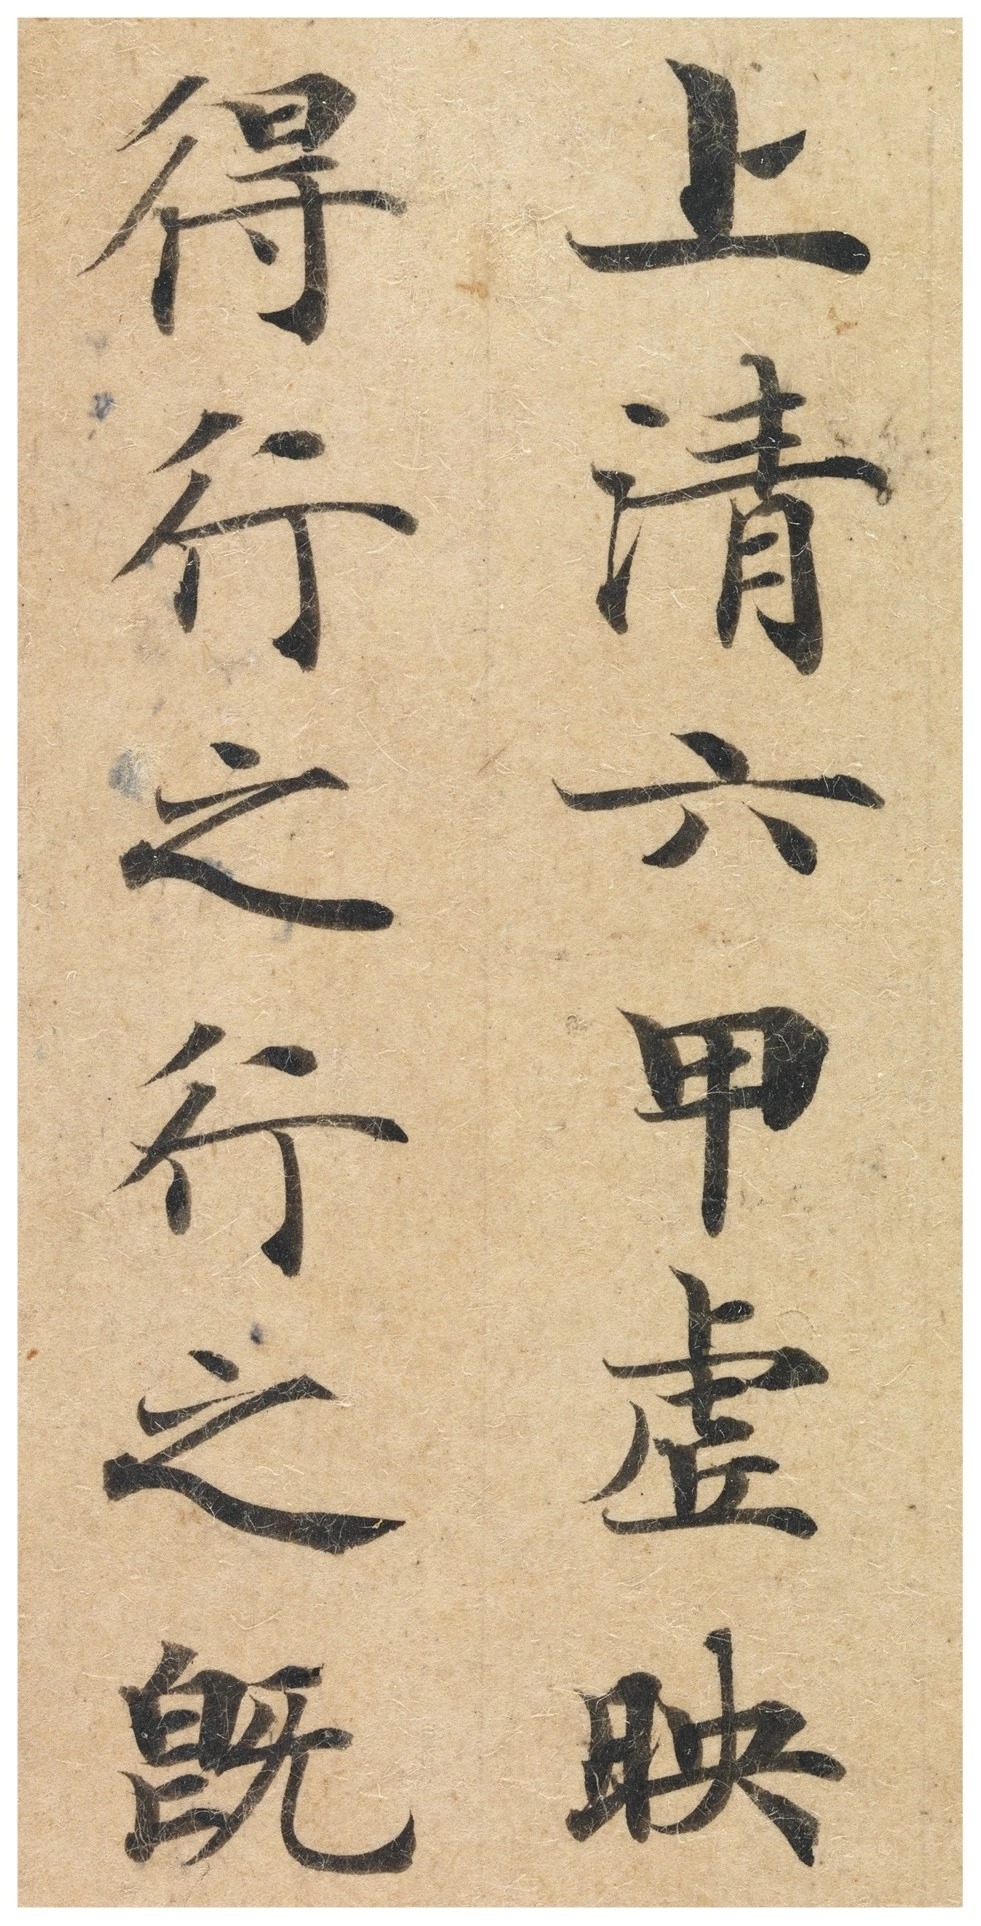 上清六甲虚映
得行之行之既